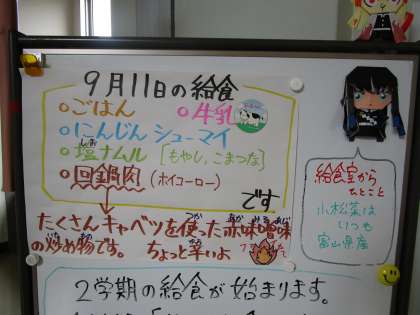 9月11日の給食
○ごはん ○牛乳
○にんじんシューマイ
○塩ナムル[もやし,こまつな]
○回鍋肉(ホイコーロー)
です
たくさんキャベツを使った赤味噌味
の炒め物です。 ちょっと辛いよ
給食室から
ひとこと
小松菜は
いつも
富山県産
2学期の給食が始まります。